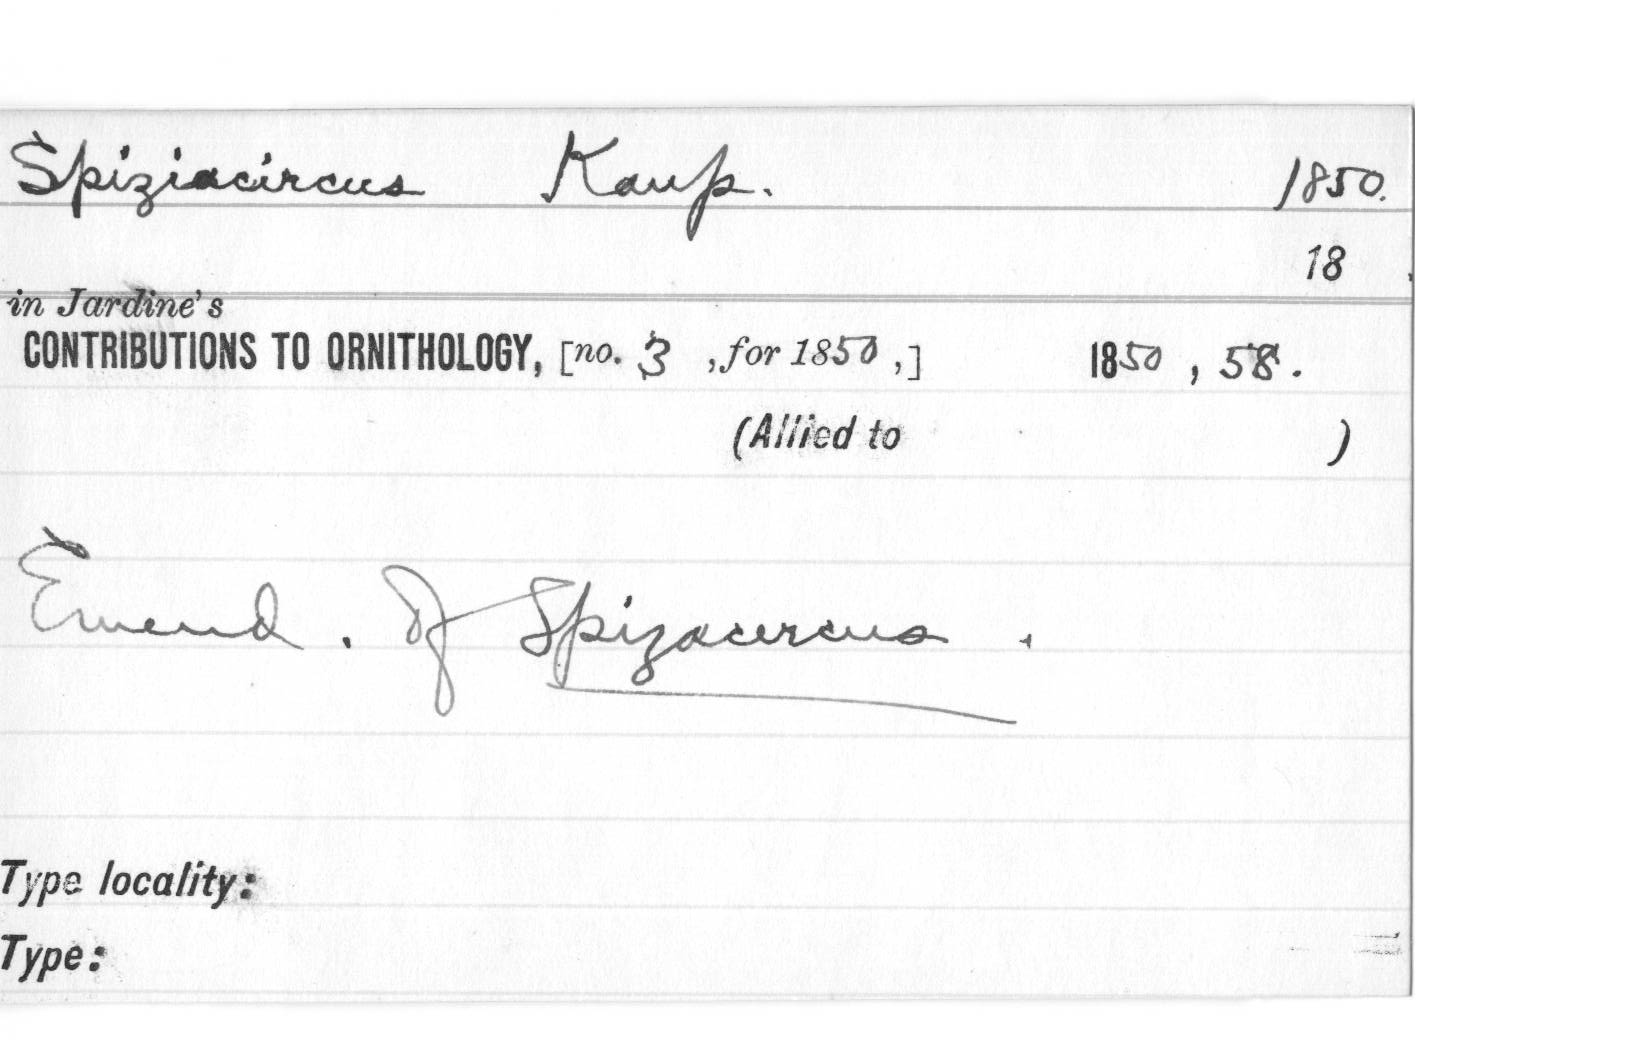 Spiziacircus Kaup. 1850.
18 .
in Jardine's
CONTRIBUTIONS TO ORNITHOLOGY, [no. 3 , for 1850 ,] 1850 , 58.
(Allied to )
Emend. Of Spizacircus .
Type locality:
Type: